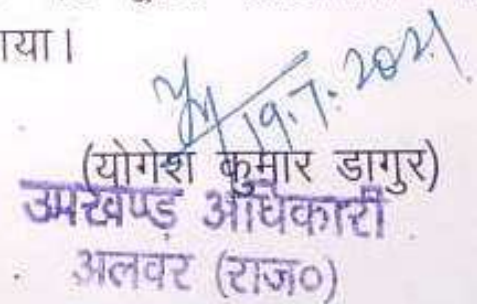 याया।
19.7.2021
(योगेश कुमार डागुर)
उपखण्ड अधिकारी
अलवर (राज०)